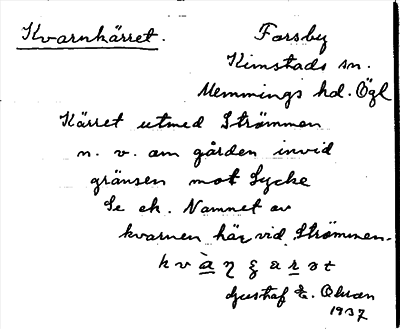 Kvarnkärret. Forsby
Kimstads sn.
Memmings hd. Ögl
Kärret utmed Strömmen
n. v. om gården invid
gränsen mot Lycke
Se ek. Namnet av
kvarnen här vid Strömmen.
Gustaf E.
1937